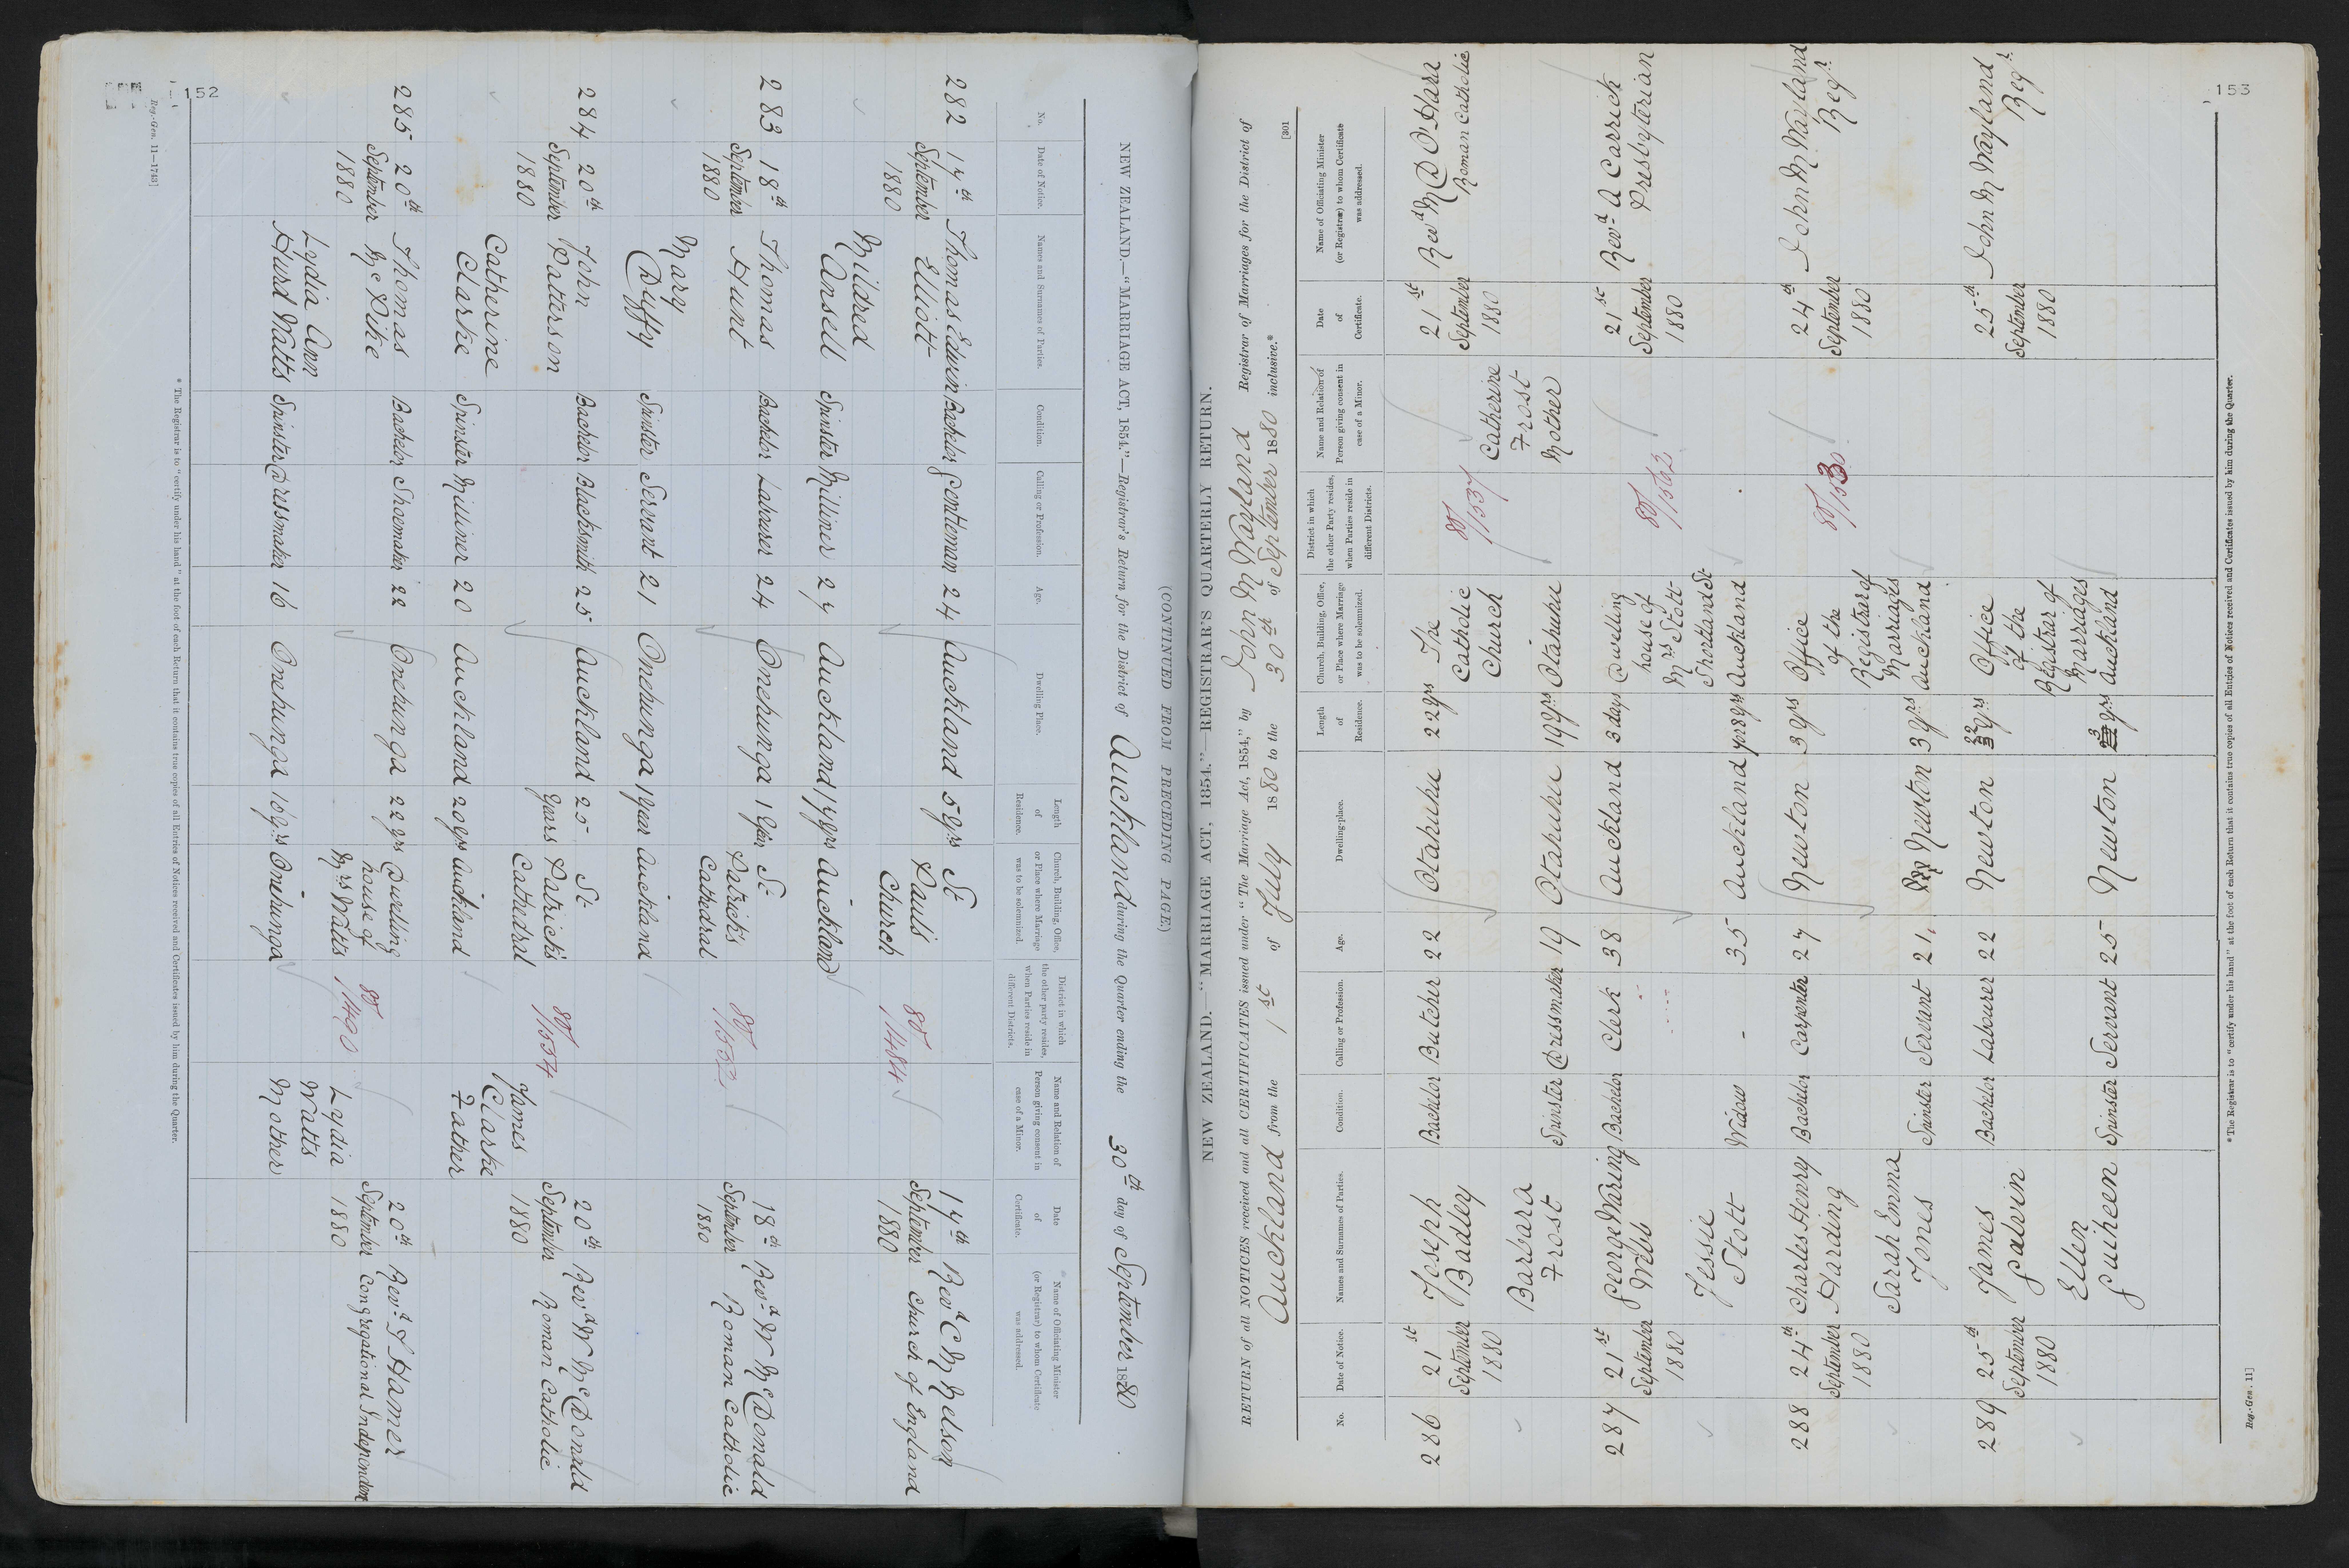 152
NEW ZEALAND.—"MARRIAGE ACT, 1854."—Registrar's Return for the District of Auckland during the Quarter ending the 30th day of September 1880
(CONTINUED FROM PRECEDING PAGE.)
No.
Date of Notice.
Names and Surnames of Parties.
Condition.
Calling or Profession.
Age.
Dwelling Place.
Length of Residence.
Church, Building, Office, or Place where Marriage was to be solemnized.
District in which the other party resides, when Parties reside in different Districts.
Name and Relation of Person giving consent in case of a Minor.
Date of Certificate.
Name of Officiating Minister (or Registrar) to whom Certificate was addressed.
282 14th Thomas Edwin Bachelor Gentleman 24 Auckland 5 yrs St 14th Revd C M Nelson
September Elliott Pauls 80/1484 September Church of England
1880 Church 1880
Mildred
Ansell Spinster Milliner 27 Auckland 14 yrs Auckland
283 18th Thomas Bachelor Labourer 24 Onehunga 1 year St 18th Revd W McDonald
September Hunt Patrick's 80/1532 September Roman Catholic
1880 Cathedral 1880
Mary
Duffy Spinster Servant 21 Onehunga 1 year Auckland
284 20th John Bachelor Blacksmith 25 Auckland 25 St 20th Revd W McDonald
September Patterson years Patrick's 80/1534 September Roman Catholic
1880 Cathedral 1880
Catherine James Clarke
Clarke Spinster Milliner 20 Auckland 20 yrs Auckland Father
285 20th Thomas Bachelor Shoemaker 22 Onehunga 22 yrs Dwelling 20th Revd J Hamer
September McPike house of 80/1490 September Congregational Independent
1880 Mrs Watts Lydia 1880
Lydia Ann Watts
Hurd Watts Spinster Dressmaker 16 Onehunga 16 yrs Onehunga Mother
* The Registrar is to "certify under his hand" at the foot of each Return that it contains true copies of all Entries of Notices received and Certificates issued by him during the Quarter.
Reg.-Gen. 11—1743]
153
[301
NEW ZEALAND.—"MARRIAGE ACT, 1854."—REGISTRAR'S QUARTERLY RETURN.
RETURN of all NOTICES received and all CERTIFICATES issued under "The Marriage Act, 1854," by John M Wayland Registrar of Marriages for the District of
Auckland from the 1st of July 1880 to the 30th of September 1880 inclusive.*
No.
Date of Notice.
Names and Surnames of Parties.
Condition.
Calling or Profession.
Age.
Dwelling-place.
Length of Residence.
Church, Building, Office, or Place where Marriage was to be solemnized.
District in which the other Party resides, when Parties reside in different Districts.
Name and Relation of Person giving consent in case of a Minor.
Date of Certificate.
Name of Officiating Minister (or Registrar) to whom Certificate was addressed.
286 21st Joseph Bachelor Butcher 22 Otahuhu 22 yrs The 21st Revd M D O'Hara
September Badley Catholic 80/1537 September Roman Catholic
1880 Church Catherine 1880
Barbara Frost
Frost Spinster Dressmaker 19 Otahuhu 19 yrs Otahuhu Mother
287 21st George Waring Bachelor Clerk 38 Auckland 3 days Dwelling 21st Revd A Carrick
September Webb house of 80/1562 September Presbyterian
1880 Mrs Stott 1880
Jessie Shortland St
Stott Widow - 35 Auckland Auckland
288 24th Charles Henry Bachelor Carpenter 27 Newton 3 yrs Office 24th John M Wayland
September Harding of the 80/1530 September Regr
1880 Registrar of 1880
Sarah Emma Marriages
Jones Spinster Servant 21 Newton 3 yrs Auckland
289 25th James Bachelor Labourer 22 Newton 22 yrs Office 25th John M Wayland
September Galvin of the September Regr
1880 Registrar of 1880
Ellen Marriages
Guiheen Spinster Servant 25 Newton 3 yrs Auckland
* The Registrar is to "certify under his hand" at the foot of each Return that it contains true copies of all Entries of Notices received and Certificates issued by him during the Quarter.
Reg.-Gen. 11]